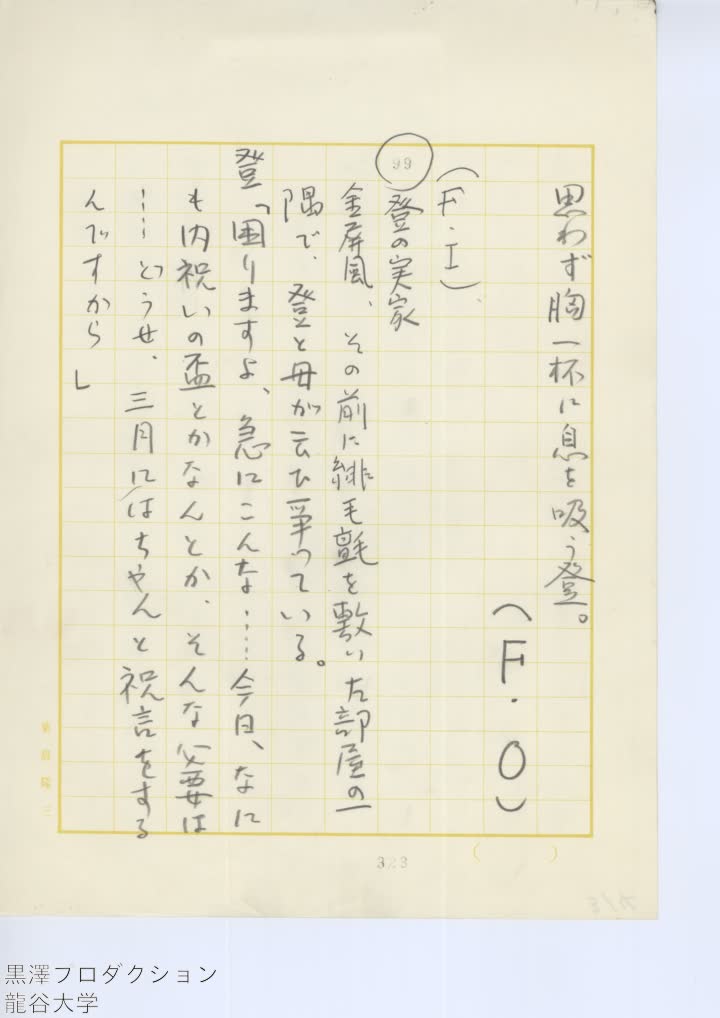 思わず胸一杯に息を吸う登。
（F・O）
（F・I）
99
登の実家
金屏風、その前に緋毛氈を敷いた部屋の一
隅で、登と母が云ひ争っている。
登「困りますよ、急にこんな……今日、なに
も内祝いの盃とかなんとか、そんな必要は
……どうせ、三月にはちゃんと祝言をする
んですから」
323
黒澤プロダクション
龍谷大学